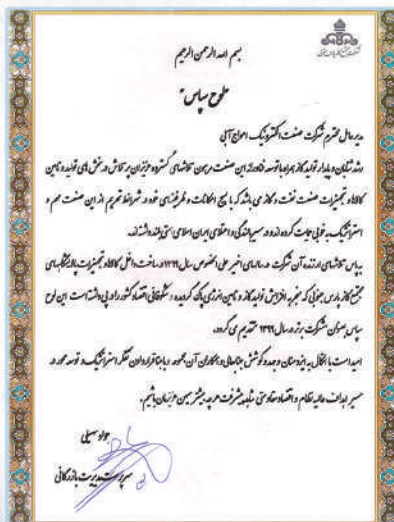 بسم الله الرحمن الرحیم
لوح سپاس
مدیرعامل محترم شرکت صنعت الکترونیک امواج آبی
رشد شتابان و پایدار تولید گاز همراه با توسعه فناورانه این صنعت مرهون تلاشهای گسترده عزیزان پرتلاش در بخش های تولید و تامین
کالا و تجهیزات صنعت نفت و گاز می باشد که با بسیج امکانات و ظرفیتهای خود در شرایط تحریم از این صنعت مهم و
استراتژیک به خوبی حمایت کرده اند و در مسیر بالندگی و اعتلای ایران اسلامی همتی بلند داشته اند.
بپاس تلاشهای ارزنده آن شرکت در سالهای اخیر علی الخصوص سال ۱۳۹۹ در ساخت داخل کالا و تجهیزات پالایشگاههای
مجتمع گاز پارس جنوبی که منجر به افزایش تولید گاز و تامین انرژی پاک گردیده و شکوفائی اقتصاد کشور را در پی داشته است این لوح
سپاس بعنوان شرکت برتر در سال ۱۳۹۹ تقدیم می گردد.
امید است با اتکال به ایزدمنان و جد و کوشش جنابعالی و همکاران آن مجموعه و با بنا قرار دادن تفکر استراتژیک و توسعه محور در
مسیر اهداف عالیه نظام و اقتصاد مقاومتی شاهد پیشرفت هرچه بیشتر میهن عزیزمان باشیم.
جواد سهیلی
سرپرست مدیریت بازرگانی